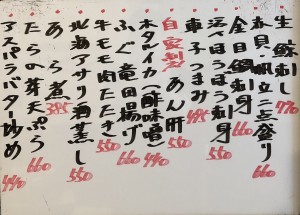 生鮪刺し 770
赤貝 帆立二点盛り 660
金目鯛刺身 660
活〆ほうぼう刺身 550
車子つまみ 495
自家製あん肝 550
ホタルイカ(酢味噌) 440
ふぐ竜田揚げ 660
牛モモたたき 550
北海アサリ酒蒸し 550
あら煮 385
たらの芽天ぷら 660
アスパラバター炒め 440